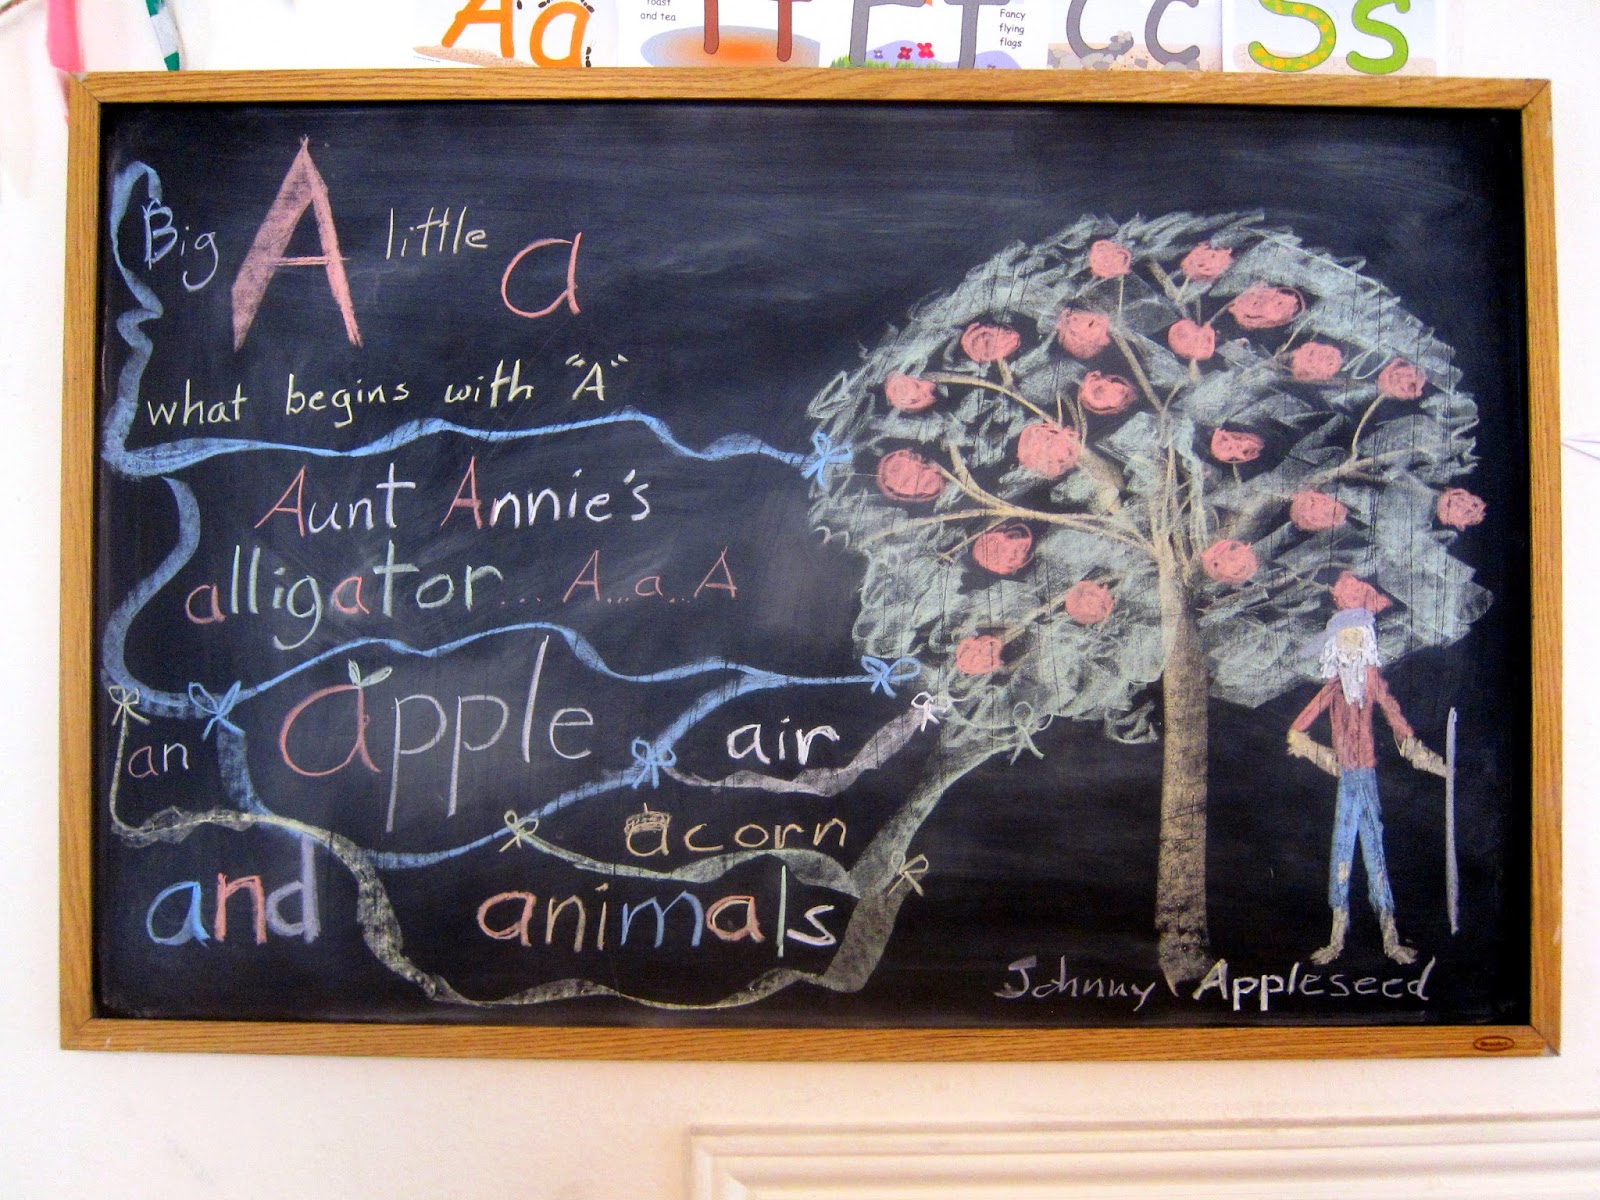 Aa
Toast
and tea
Tt
Ff
Fancy
flying
flags
Cc
Ss
Big A little a
what begins with "A"
Aunt Annie's
alligator.... A...a...A
an apple air
acorn
and animals
Johnny Appleseed